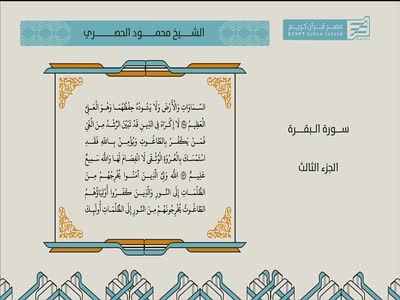 الشيخ محمود الحصري
مصر قرآن كريم
EGYPT QURAN KAREEM
السَّمَاوَاتِ وَالْأَرْضَ وَلَا يَئُودُهُ حِفْظُهُمَا وَهُوَ الْعَلِيُّ
الْعَظِيمُ لَا إِكْرَاهَ فِي الدِّينِ قَدْ تَبَيَّنَ الرُّشْدُ مِنَ الْغَيِّ
فَمَنْ يَكْفُرْ بِالطَّاغُوتِ وَيُؤْمِنْ بِاللَّهِ فَقَدِ
اسْتَمْسَكَ بِالْعُرْوَةِ الْوُثْقَى لَا انْفِصَامَ لَهَا وَاللَّهُ سَمِيعٌ
عَلِيمٌ اللَّهُ وَلِيُّ الَّذِينَ آمَنُوا يُخْرِجُهُمْ مِنَ
الظُّلُمَاتِ إِلَى النُّورِ وَالَّذِينَ كَفَرُوا أَوْلِيَاؤُهُمُ
الطَّاغُوتُ يُخْرِجُونَهُمْ مِنَ النُّورِ إِلَى الظُّلُمَاتِ أُولَئِكَ
سورة البقرة
الجزء الثالث